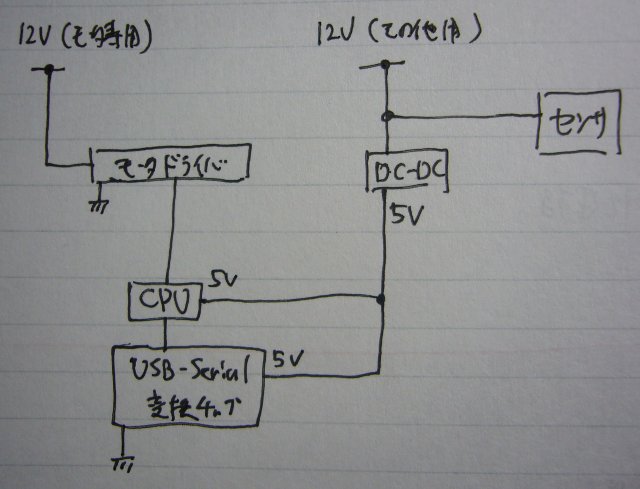 12V (モータ専用)
12V (その他用)
センサ
モータドライバ
DC-DC
5V
5V
CPU
USB-Serial
5V
変換チップ